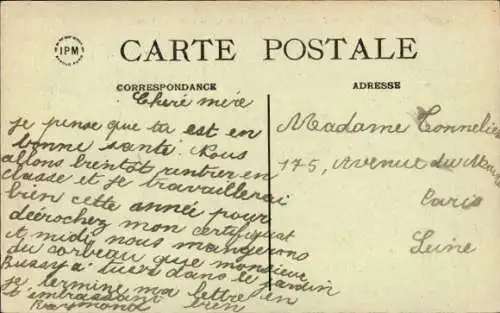 IPM
CARTE POSTALE
CORRESPONDANCE
ADRESSE
Cheré mère
je pense que ta est en
bonne santé. Nous
allons bientot rentrer en
classe et je travaillerai
bien cette année pour
décrochez mon certifiquat
A midi nous mangerons
du corbeau que monsieur
Bussy a tuers dans le jardin
je termine ma lettre en
t'embrassant bien
Raymond
Madame Connelie
175, Avenue du
Paris
Seine